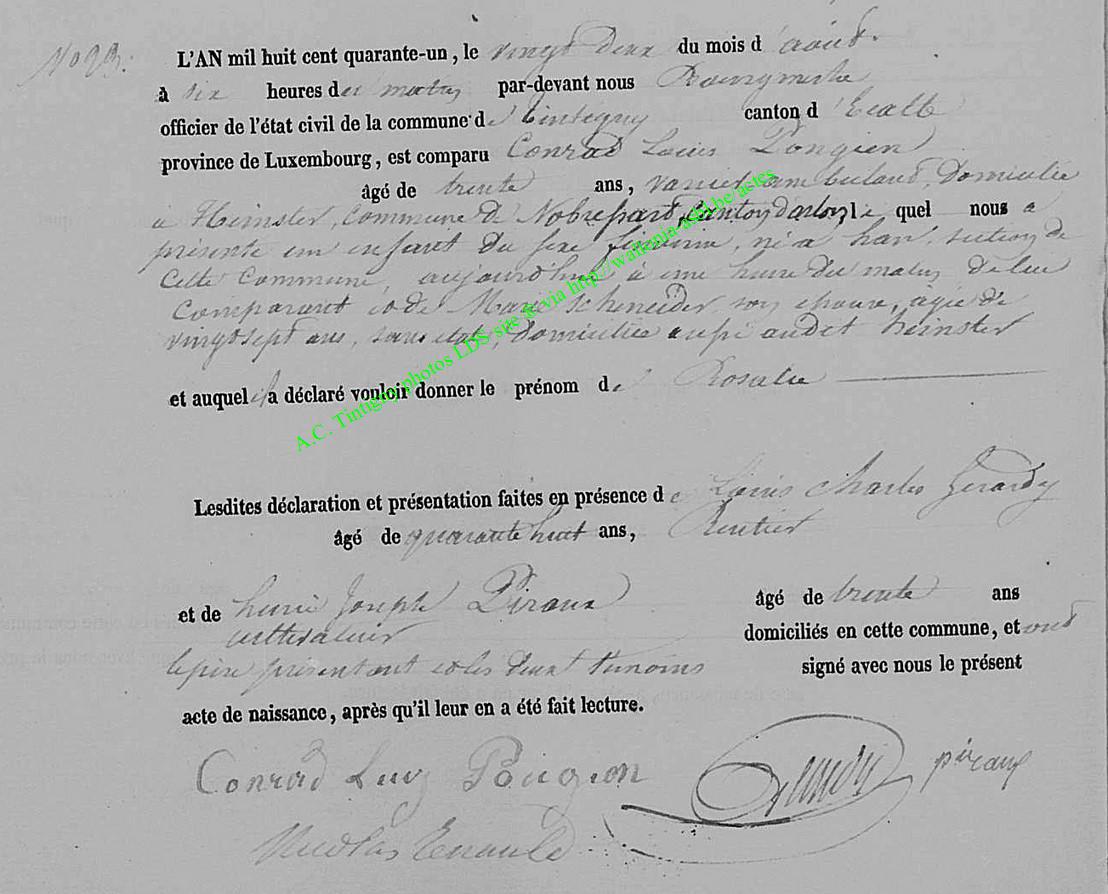 No 23.
L'AN mil huit cent quarante-un, le vingt deux du mois d'août
à six heures du matin par-devant nous Bourgmestre
officier de l'état civil de la commune de Tintigny canton d'Etalle
province de Luxembourg, est comparu Conrad Louis
âgé de trente ans, vanier ambulant, domicilié
à Heinster, commune de Nobressart, canton d'arlon, le quel nous a
présenté un enfant du sexe féminin, né a han section de
cette commune, aujourd'hui à une heure du matin de lui
comparant et de Marie Scheneider, son épouse, agée de
vingt sept ans, sans état, domiciliée audit heinster
et auquel il a déclaré vouloir donner le prénom de Rosalie
Lesdites déclaration et présentation faites en présence de Louis Charles Gerardy
âgé de quarante huit ans, Rentier
et de henri Joseph Piraux âgé de trente ans
cultivateur domiciliés en cette commune, et ont
le père présentant et les deux témoins signé avec nous le présent
acte de naissance, après qu'il leur en a été fait lecture.
Conrad
piraux
Nicolas
A.C. Tintigny photos LDS site & via http://wallonia-asbl.be/actes